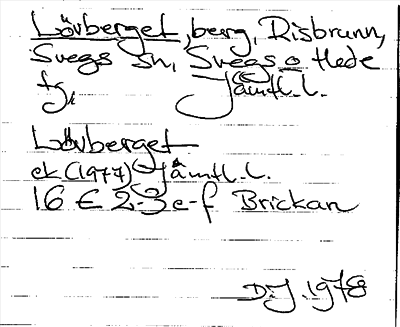 Lövberget, berg, Risbrunn,
Svegs sn, Svegs o Hede
tg, Jämtl.l.
Lövberget
ek (1977) Jämtl.l.
16 E 2-3 e-f Brickan
D.J. 1978